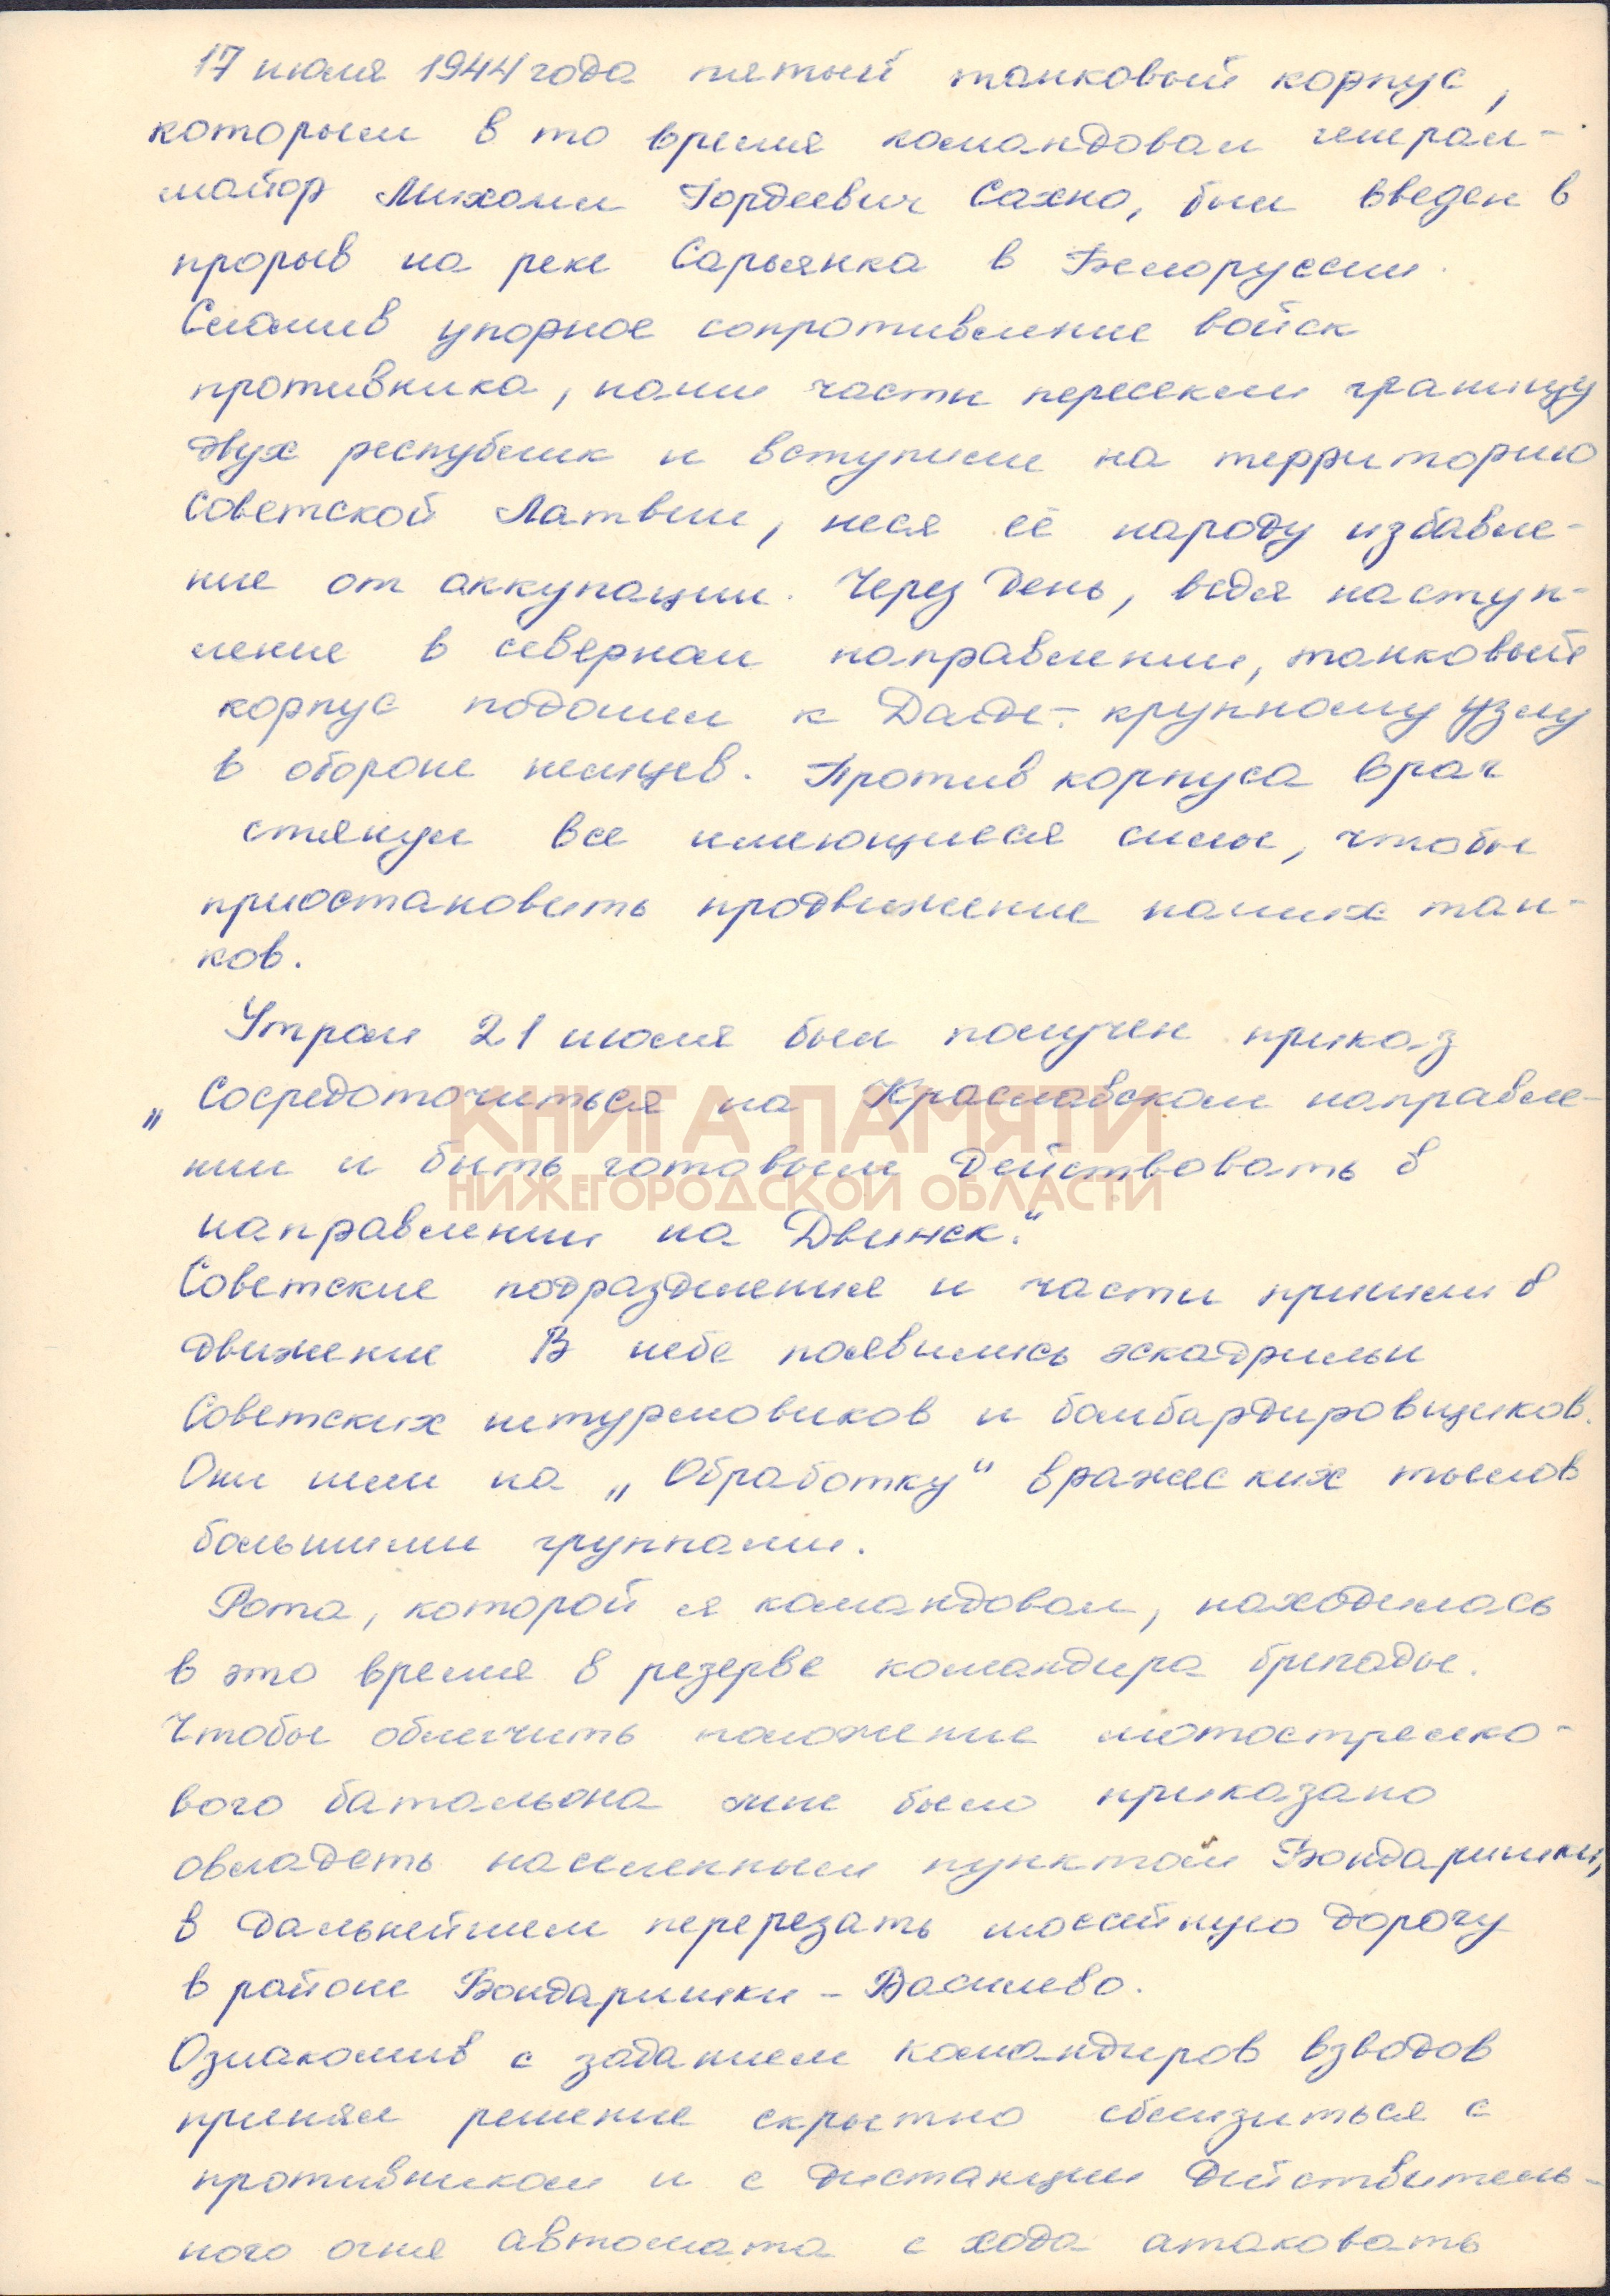 17 июля 1944 года пятый танковый корпус,
которым в то время командовал генерал-
майор Михаил Гордеевич Сахно, был введен в
прорыв на реке Сарьянка в Белоруссии.
Сломив упорное сопротивление войск
противника, наши части пересекли границу
двух республик и вступили на территорию
Советской Латвии, неся её народу избавле-
ние от аккупации. Через день, ведя наступ-
ление в северном направлении, танковый
корпус подошел к Дагде - крупному узлу
в обороне немцев. Против корпуса враг
стянул все имеющиеся силы, чтобы
приостановить продвижение наших тан-
ков.
Утром 21 июля был получен приказ
„Сосредоточиться на Краславском направле-
нии и быть готовым действовать в
КНИГА ПАМЯТИ
НИЖЕГОРОДСКОЙ ОБЛАСТИ
направлении на Двинск."
Советские подразделения и части пришли в
движение В небе появились эскадрильи
Советских штурмовиков и бомбардировщиков.
Они шли на „Обработку" вражеских тылов
большими группами.
Рота, которой я командовал, находилась
в это время в резерве командира бригады.
Чтобы облегчить положение мотострелко-
вого батальона мне было приказано
овладеть населенным пунктом Бондаришки,
в дальнейшем перерезать шоссейную дорогу
в районе Бондаришки - Василево.
Ознакомив с заданием командиров взводов
принял решение скрытно сблизиться с
противником и с дистанции действитель-
ного огня автомата с хода атаковать